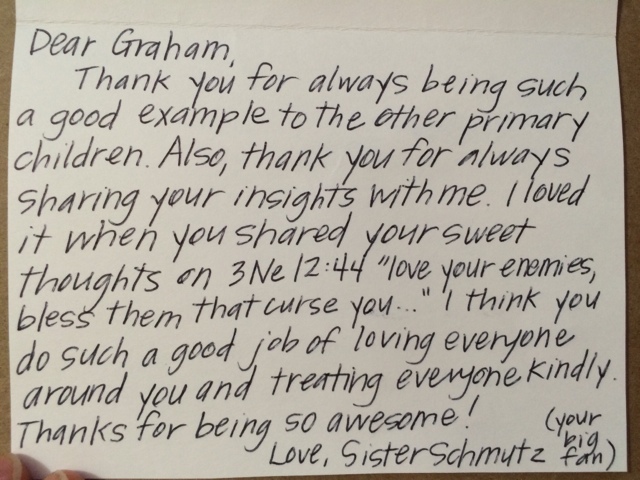 Dear Graham,
Thank you for always being such
a good example to the other primary
children. Also, thank you for always
sharing your insights with me. I loved
it when you shared your sweet
thoughts on 3 Ne 12:44 "love your enemies,
bless them that curse you..." I think you
do such a good job of loving everyone
around you and treating everyone kindly.
Thanks for being so awesome!
Love, Sister Schmutz
(your
big
fan)